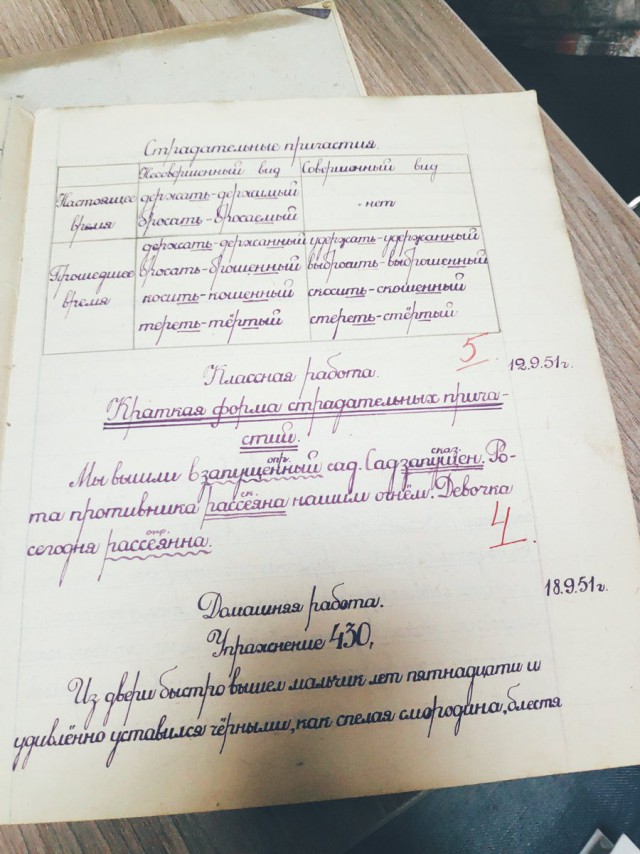 Страдательные причастия.
Несовершенный вид Совершенный вид
Настоящее время
держать-держимый
бросать-бросаемый
нет
Прошедшее время
держать-держанный удержать-удержанный
бросать-брошенный выбросить-выброшенный
косить-кошенный скосить-скошенный
тереть-тёртый стереть-стёртый
5.
12.9.51г.
Классная работа.
Краткая форма страдательных прича-
стий.
опр. сказ.
Мы вышли в запущенный сад. Сад запущен. Ро-
ск.
та противника рассеяна нашим огнём. Девочка
опр.
сегодня рассеянна.
4.
18.9.51г.
Домашняя работа.
Упражнение 430,
Из двери быстро вышел мальчик лет пятнадцати и
удивлённо уставился чёрными, как спелая смородина, блестя